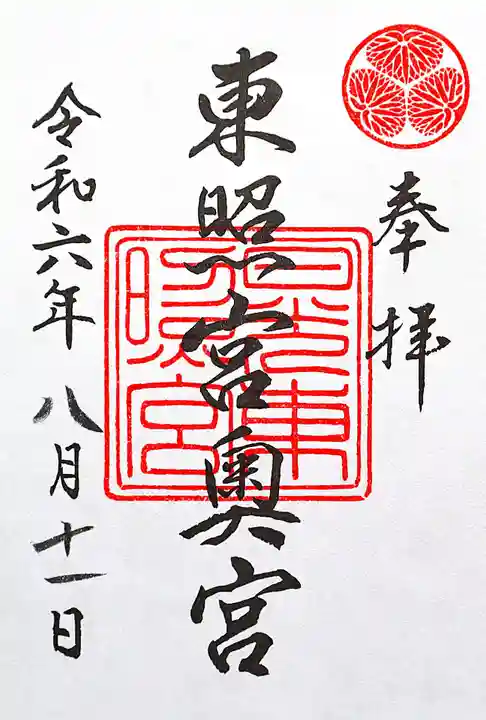 奉拝
東照宮奥宮
令和六年八月十一日
日光東照宮